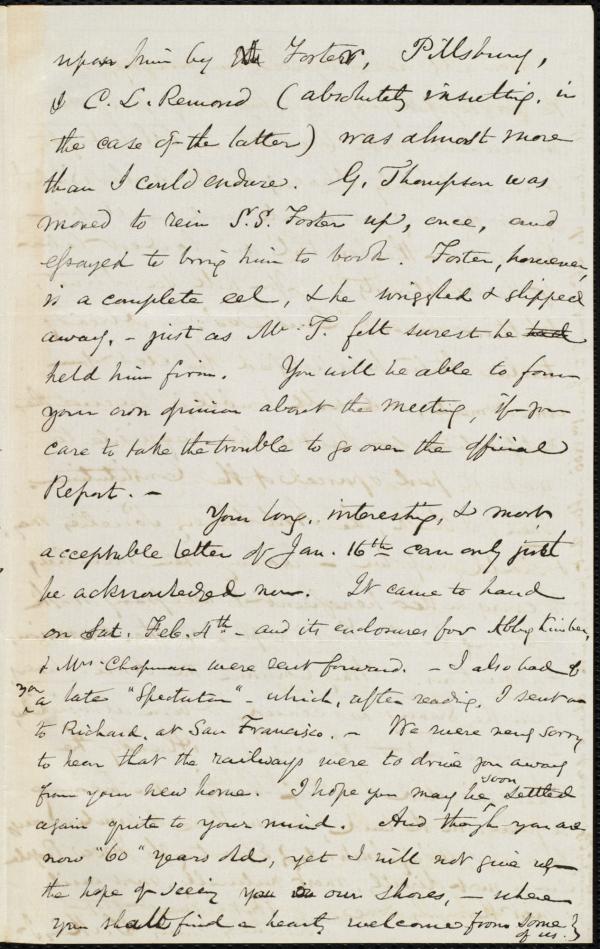 upon him by Foster, Pillsbury,
& C. L. Remond (absolutely insulting, in
the case of the latter) was almost more
than I could endure. G. Thompson was
moved to rein S. S. Foster up, once, and
essayed to bring him to book. Foster, however,
is a complete eel, & he wriggled & slipped
away, - just as Mr. T. felt surest he had
held him firm. You will be able to form
your own opinion about the meeting, if you
care to take the trouble to go over the official
Report. -
Your long, interesting, & most
acceptable letter of Jan. 16th can only just
be acknowledged now. It came to hand
on Sat. Feb. 4th - and its enclosures for Abby Kimber,
& Mrs. Chapman were sent forward. - I also had
a late "Spectator" - which, after reading, I sent on
to Richard, at San Francisco. - We were very sorry
to hear that the railways were to drive you away
from your new home. I hope you may be soon settled
again quite to your mind. And though you are
now "60" years old, yet I will not give up
the hope of seeing you on our shores, - where
you shall find a hearty welcome from some
of us!